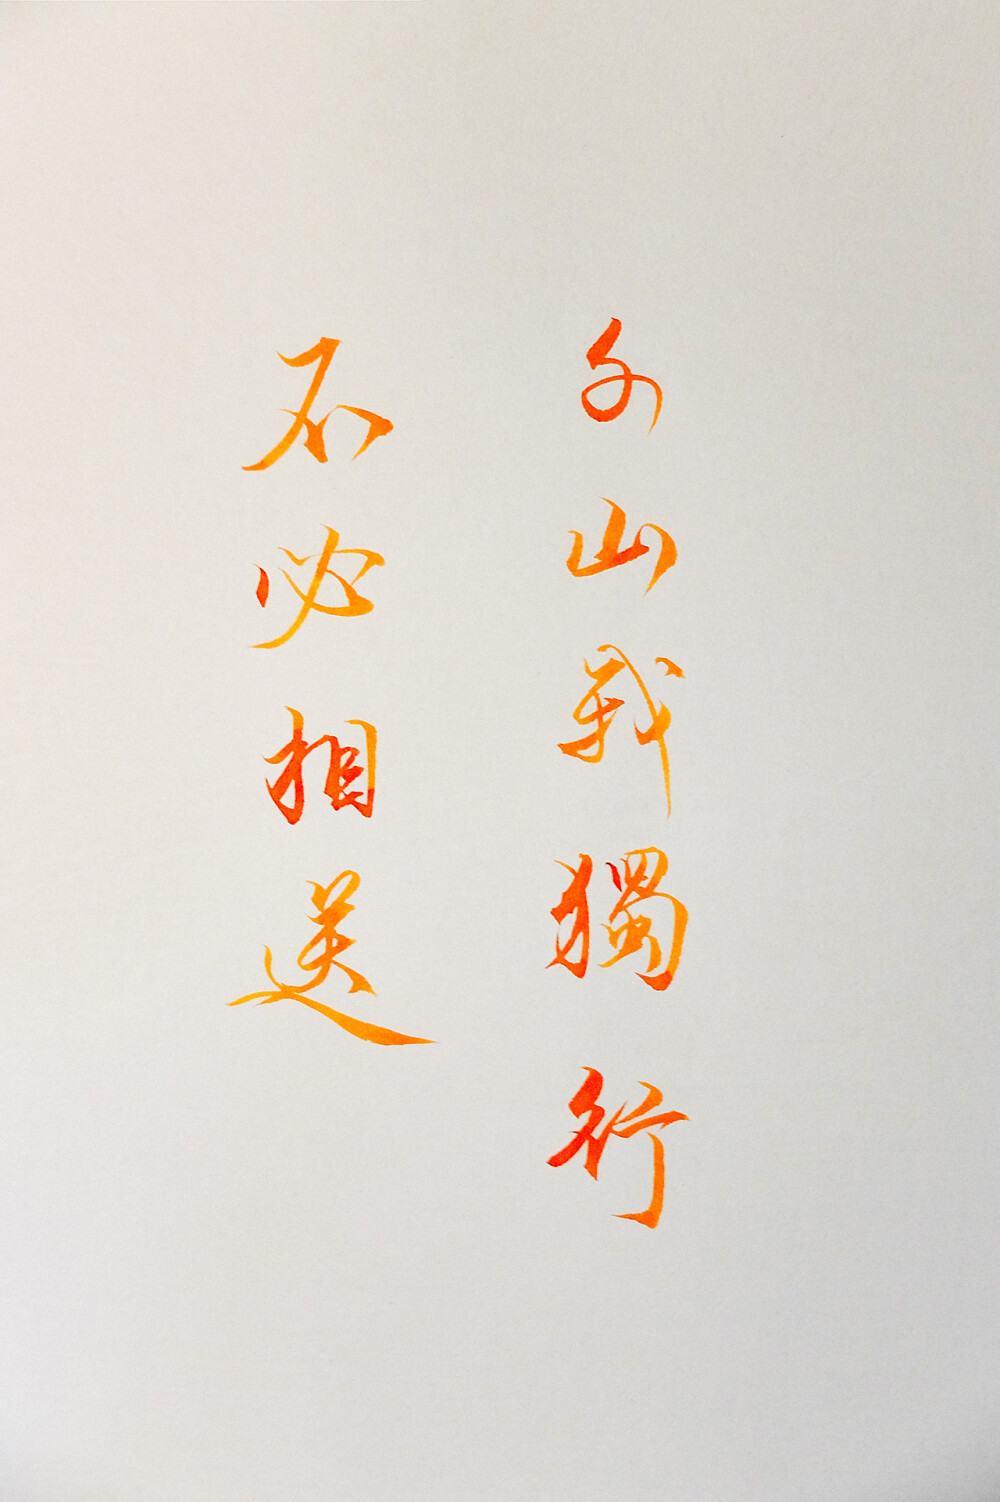 千山我獨行
不必相送